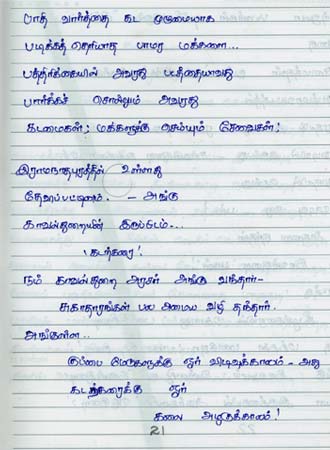 பாத வார்த்தை கூட முழுமையாக
படிக்கத் தெரியாத பாமர மக்களை...
பத்திரிக்கையில் அவரது படத்தையாவது
பார்க்கச் சொல்லும் அவரது
கடமைகள்; மக்களுக்கு செய்யும் சேவைகள்!
இராமநாதபுரத்தில் உள்ளது
தேவிபட்டிணம். - அங்கு
காவல்துறையின் இருப்பிடம்...
'கடற்கரை'!
நம் காவல்துறை அரசர் அங்கு வந்தார்-
சுகாதாரங்கள் பல அமைய வழி தந்தார்.
அங்குள்ள..
குப்பை மேடுகளுக்கு ஓர் விடிவுக்காலம் - அது
கடற்கரைக்கு ஓர்
கலை அழகுக்காலம்!
21